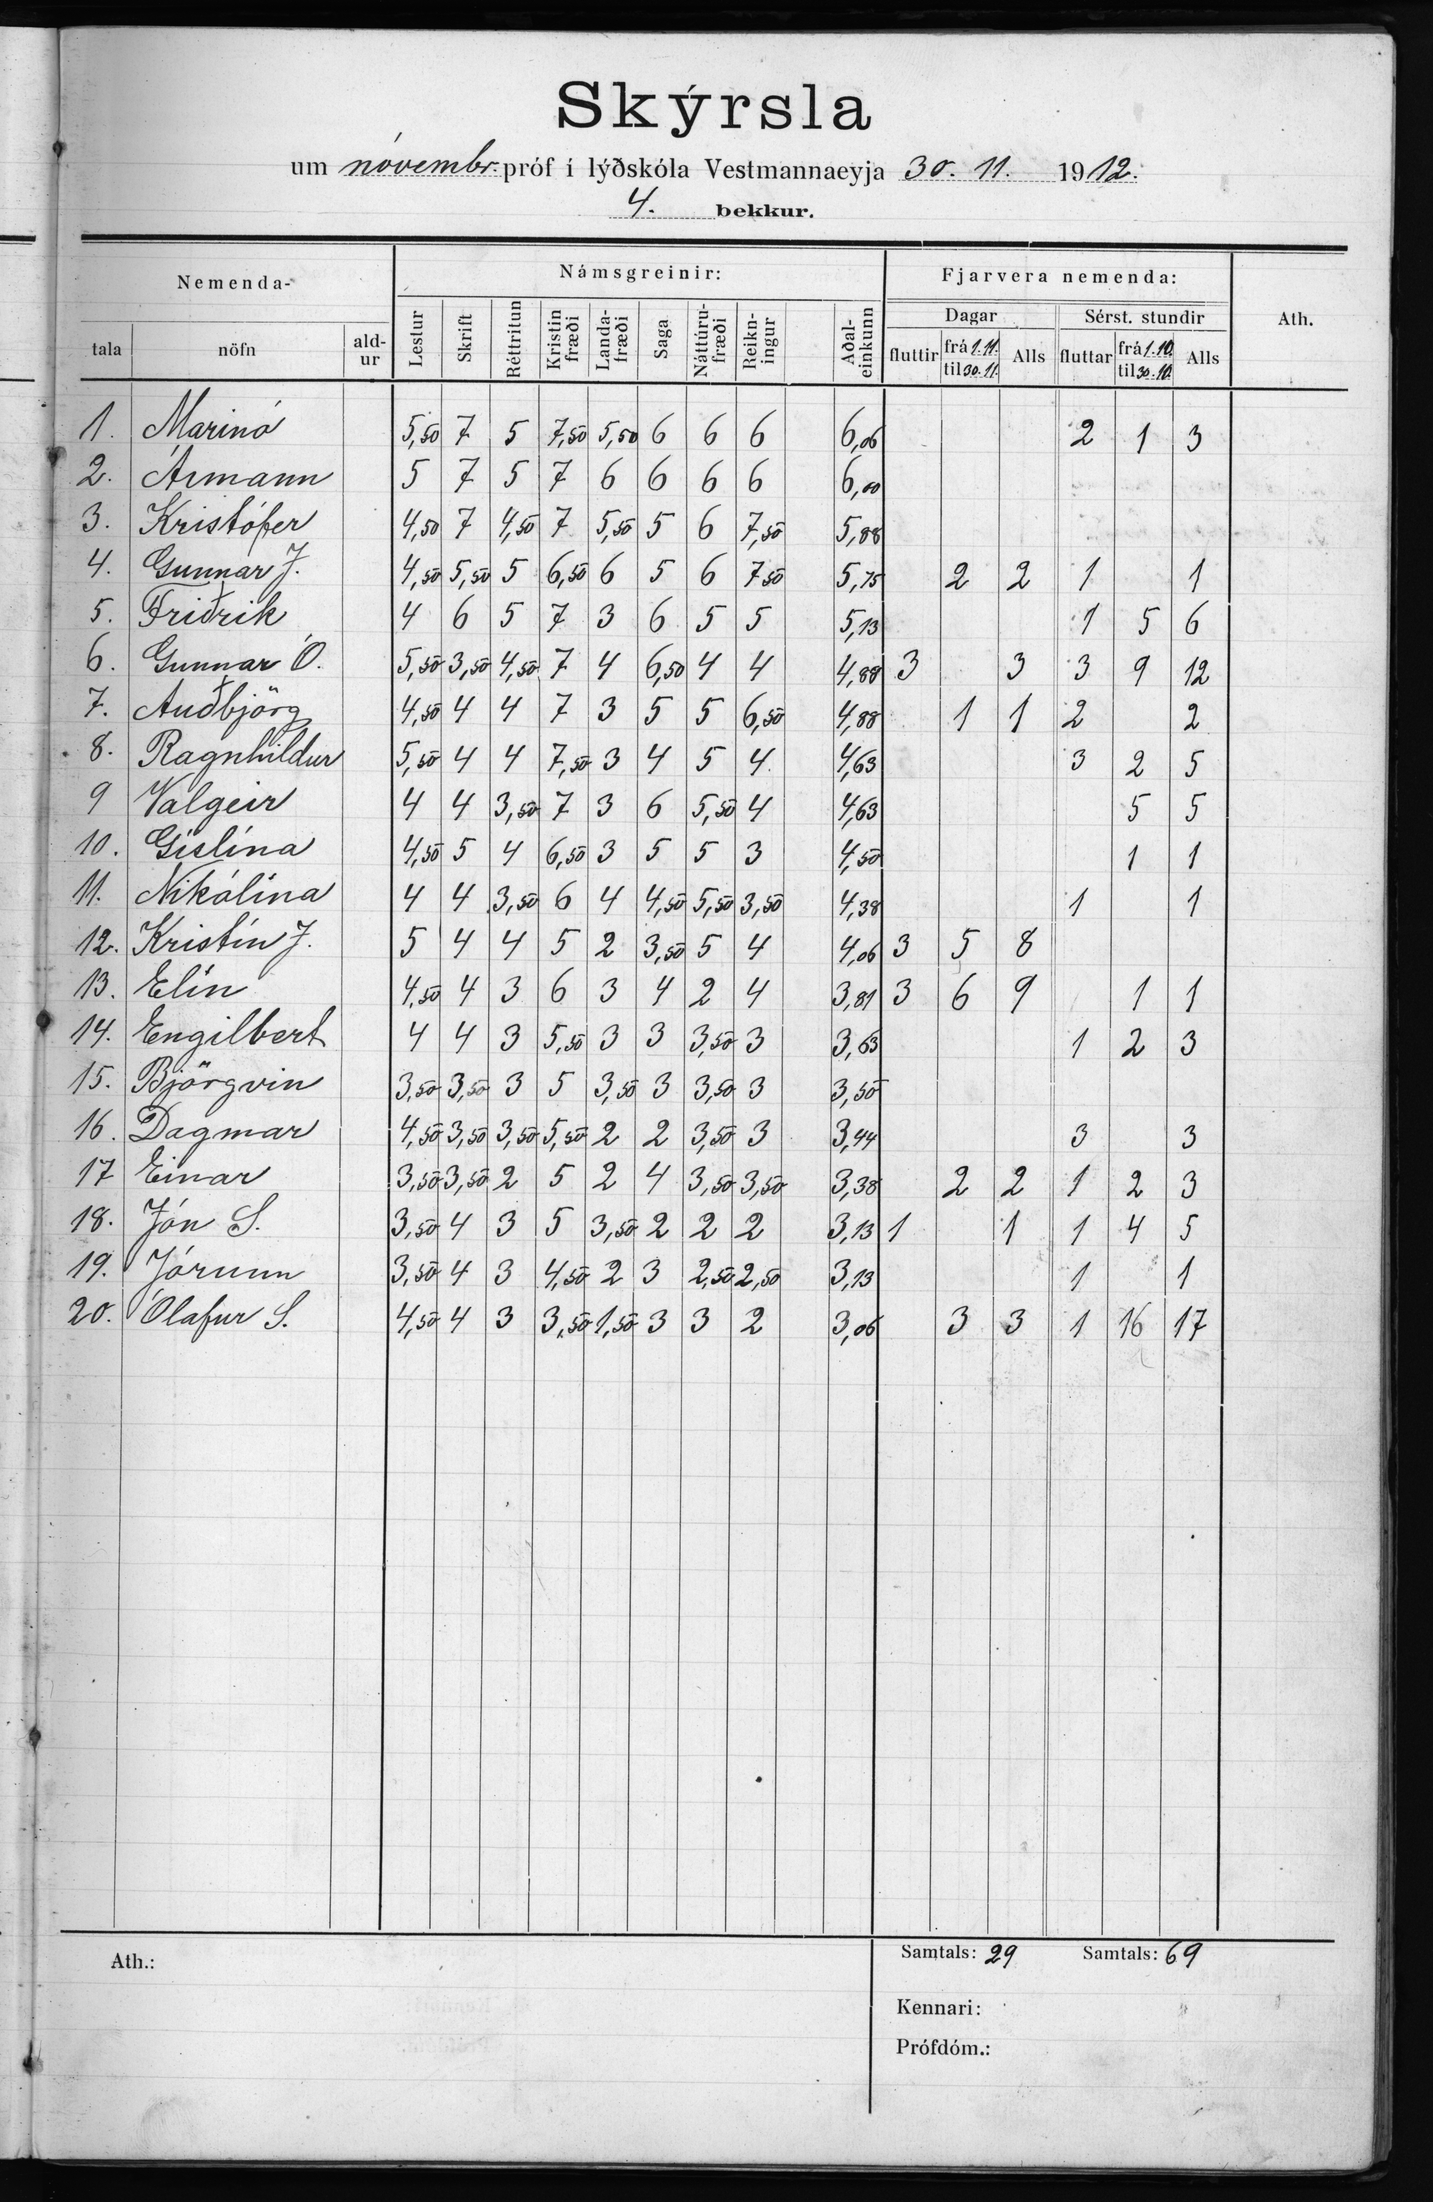 Skýrsla
um nóvembr. próf í lýðskóla Vestmannaeyja 30. 11. 1912.
4. bekkur.
Nemenda- Námsgreinir: Fjarvera nemenda: Ath.
tala nöfn ald-ur Lestur Skrift Réttritun Kristin fræði Landa-fræði Saga Náttúru-fræði Reikn-ingur Aðal-einkunn Dagar Sérst. stundir
fluttir frá 1.11. til 30.11. Alls fluttar frá 1.10. til 30.10. Alls
1. Marinó 5,50 7 5 7,50 5,50 6 6 6 6,06 2 1 3
2. Ármann 5 7 5 7 6 6 6 6 6,00
3. Kristófer 4,50 7 4,50 7 5,50 5 6 7,50 5,88
4. Gunnar J. 4,50 5,50 5 6,50 6 5 6 7,50 5,75 2 2 1 1
5. Friðrik 4 6 5 7 3 6 5 5 5,13 1 5 6
6. Gunnar Ó. 5,50 3,50 4,50 7 4 6,50 4 4 4,88 3 3 3 9 12
7. Auðbjörg 4,50 4 4 7 3 5 5 6,50 4,88 1 1 2 2
8. Ragnhildur 5,50 4 4 7,50 3 4 5 4 4,63 3 2 5
9 Valgeir 4 4 3,50 7 3 6 5,50 4 4,63 5 5
10. Gíslína 4,50 5 4 6,50 3 5 5 3 4,50 1 1
11. Nikólína 4 4 3,50 6 4 4,50 5,50 3,50 4,38 1 1
12. Kristín J. 5 4 4 5 2 3,50 5 4 4,06 3 5 8
13. Elín 4,50 4 3 6 3 4 2 4 3,81 3 6 9 1 1
14. Engilbert 4 4 3 5,50 3 3 3,50 3 3,63 1 2 3
15. Björgvin 3,50 3,50 3 5 3,50 3 3,50 3 3,50
16. Dagmar 4,50 3,50 3,50 5,50 2 2 3,50 3 3,44 3 3
17 Einar 3,50 3,50 2 5 2 4 3,50 3,50 3,38 2 2 1 2 3
18. Jón S. 3,50 4 3 5 3,50 2 2 2 3,13 1 1 1 4 5
19. Jórunn 3,50 4 3 4,50 2 3 2,50 2,50 3,13 1 1
20. Ólafur S. 4,50 4 3 3,50 1,50 3 3 2 3,06 3 3 1 16 17
Ath.: Samtals: 29 Samtals: 69
Kennari:
Prófdóm.: